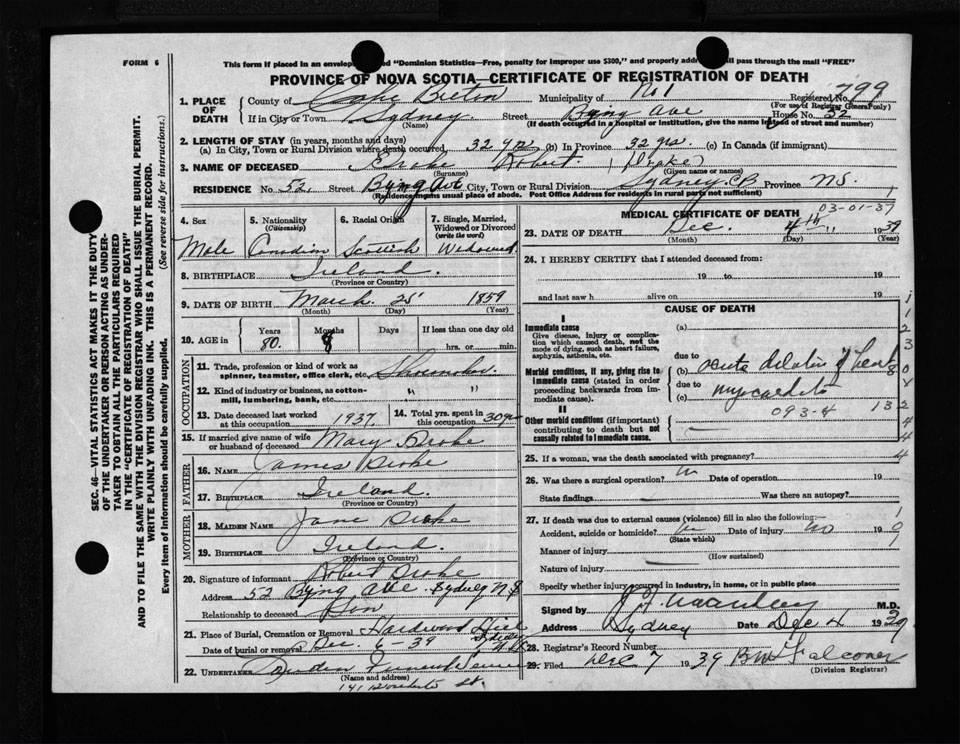 FORM 6
This form if placed in an envelope "Dominion Statistics—Free, penalty for improper use $300," and properly pass through the mail "FREE"
PROVINCE OF NOVA SCOTIA—CERTIFICATE OF REGISTRATION OF DEATH
1. PLACE OF DEATH County of Cape Breton Municipality of No 1 Registered No. 799
(For use of Registrar General only)
If in City or Town Sydney Street Byng Ave House No. 52
(Name) (If death occurred in a hospital or Institution, give the name instead of street and number)
2. LENGTH OF STAY (in years, months and days)
(a) In City, Town or Rural Division where death occurred, 32 yrs (b) In Province 32 yrs. (c) In Canada (if immigrant)
3. NAME OF DECEASED Robert (Drake)
(Surname) (Given name or names)
RESIDENCE No. 52, Street Byng Ave City, Town or Rural Division Sydney CB Province N.S.
(Residence means usual place of abode. Post Office Address for residents in rural parts not sufficient)
4. Sex 5. Nationality (Citizenship) 6. Racial Origin 7. Single, Married, Widowed or Divorced (write the word)
Male Canadian Scottish Widowed
8. BIRTHPLACE Ireland.
(Province or Country)
9. DATE OF BIRTH March 25 1859
(Month) (Day) (Year)
10. AGE in Years Months Days If less than one day old
80. 8 hrs. or min.
OCCUPATION
11. Trade, profession or kind of work as spinner, teamster, office clerk, etc. Shoemaker
12. Kind of industry or business, as cotton-mill, lumbering, bank, etc. " "
13. Date deceased last worked at this occupation 1937. 14. Total yrs. spent in this occupation 30 yrs
15. If married give name of wife or husband of deceased Mary Drake
FATHER
16. NAME James Drake
17. BIRTHPLACE Ireland.
(Province or Country)
MOTHER
18. MAIDEN NAME Jane Drake
19. BIRTHPLACE Ireland.
(Province or Country)
20. Signature of informant Robert Drake
Address 52 Byng Ave. Sydney N.S
Relationship to deceased Son
21. Place of Burial, Cremation or Removal Hardwood Hill Sydney
Date of burial or removal Dec. 6-39
22. UNDERTAKER Funeral Service
(Name and address)
141 St.
MEDICAL CERTIFICATE OF DEATH
03-01-37
23. DATE OF DEATH Dec. 4th 1939
(Month) (Day) (Year)
24. I HEREBY CERTIFY that I attended deceased from
19 to 19
and last saw h alive on 19
CAUSE OF DEATH
I
Immediate cause (a)
Give disease, injury or complication which caused death, not the mode of dying, such as heart failure, asphyxia, asthenia, etc.
due to
Morbid conditions, if any, giving rise to immediate cause (stated in order proceeding backwards from immediate cause). (b) acute dilation of heart
due to
(c) myocarditis
093-4
II
Other morbid conditions (if important) contributing to death but not causally related to immediate cause.
25. If a woman, was the death associated with pregnancy?
26. Was there a surgical operation? Date of operation 19
State findings Was there an autopsy?
27. If death was due to external causes (violence) fill in also the following:—
Accident, suicide or homicide? Date of injury no 19
(State which)
Manner of injury
(How sustained)
Nature of injury
Specify whether injury occurred in industry, in home, or in public place
Signed by M.D.
Address Sydney Date Dec 4 1939
28. Registrar's Record Number
29. Filed Dec 7 1939 Falconer
(Division Registrar)
SEC. 46—VITAL STATISTICS ACT MAKES IT THE DUTY
OF THE UNDERTAKER OR PERSON ACTING AS UNDER-
TAKER TO OBTAIN ALL THE PARTICULARS REQUIRED
IN THE "CERTIFICATE OF REGISTRATION OF DEATH"
AND TO FILE THE SAME WITH THE DIVISION REGISTRAR WHO SHALL ISSUE THE BURIAL PERMIT.
WRITE PLAINLY WITH UNFADING INK. THIS IS A PERMANENT RECORD.
Every item of Information should be carefully supplied. (See reverse side for instructions.)